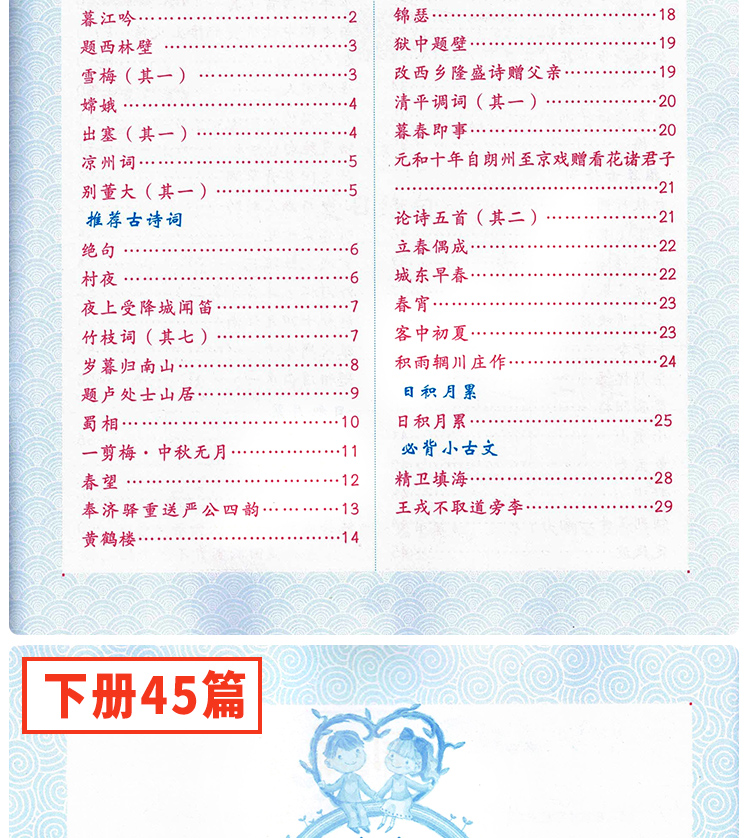 暮江吟…………………………2
题西林壁 ……………………3
雪梅（其一） …………………3
嫦娥……………………………4
出塞（其一）…………………4
凉州词…………………………5
别董大（其一）………………5
推荐古诗词
绝句 …………………………6
村夜 …………………………6
夜上受降城闻笛………………7
竹枝词（其七）………………7
岁暮归南山……………………8
题卢处士山居…………………9
蜀相…………………………10
一剪梅·中秋无月……………11
春望 …………………………12
奉济驿重送严公四韵…………13
黄鹤楼…………………………14
锦瑟…………………………18
狱中题壁……………………19
改西乡隆盛诗赠父亲…………19
清平调词（其一）……………20
暮春即事……………………20
元和十年自朗州至京戏赠看花诸君子
…………………………………21
论诗五首（其二）……………21
立春偶成……………………22
城东早春……………………22
春宵…………………………23
客中初夏……………………23
积雨辋川庄作………………24
日积月累
日积月累……………………25
必背小古文
精卫填海……………………28
王戎不取道旁李………………29
下册45篇